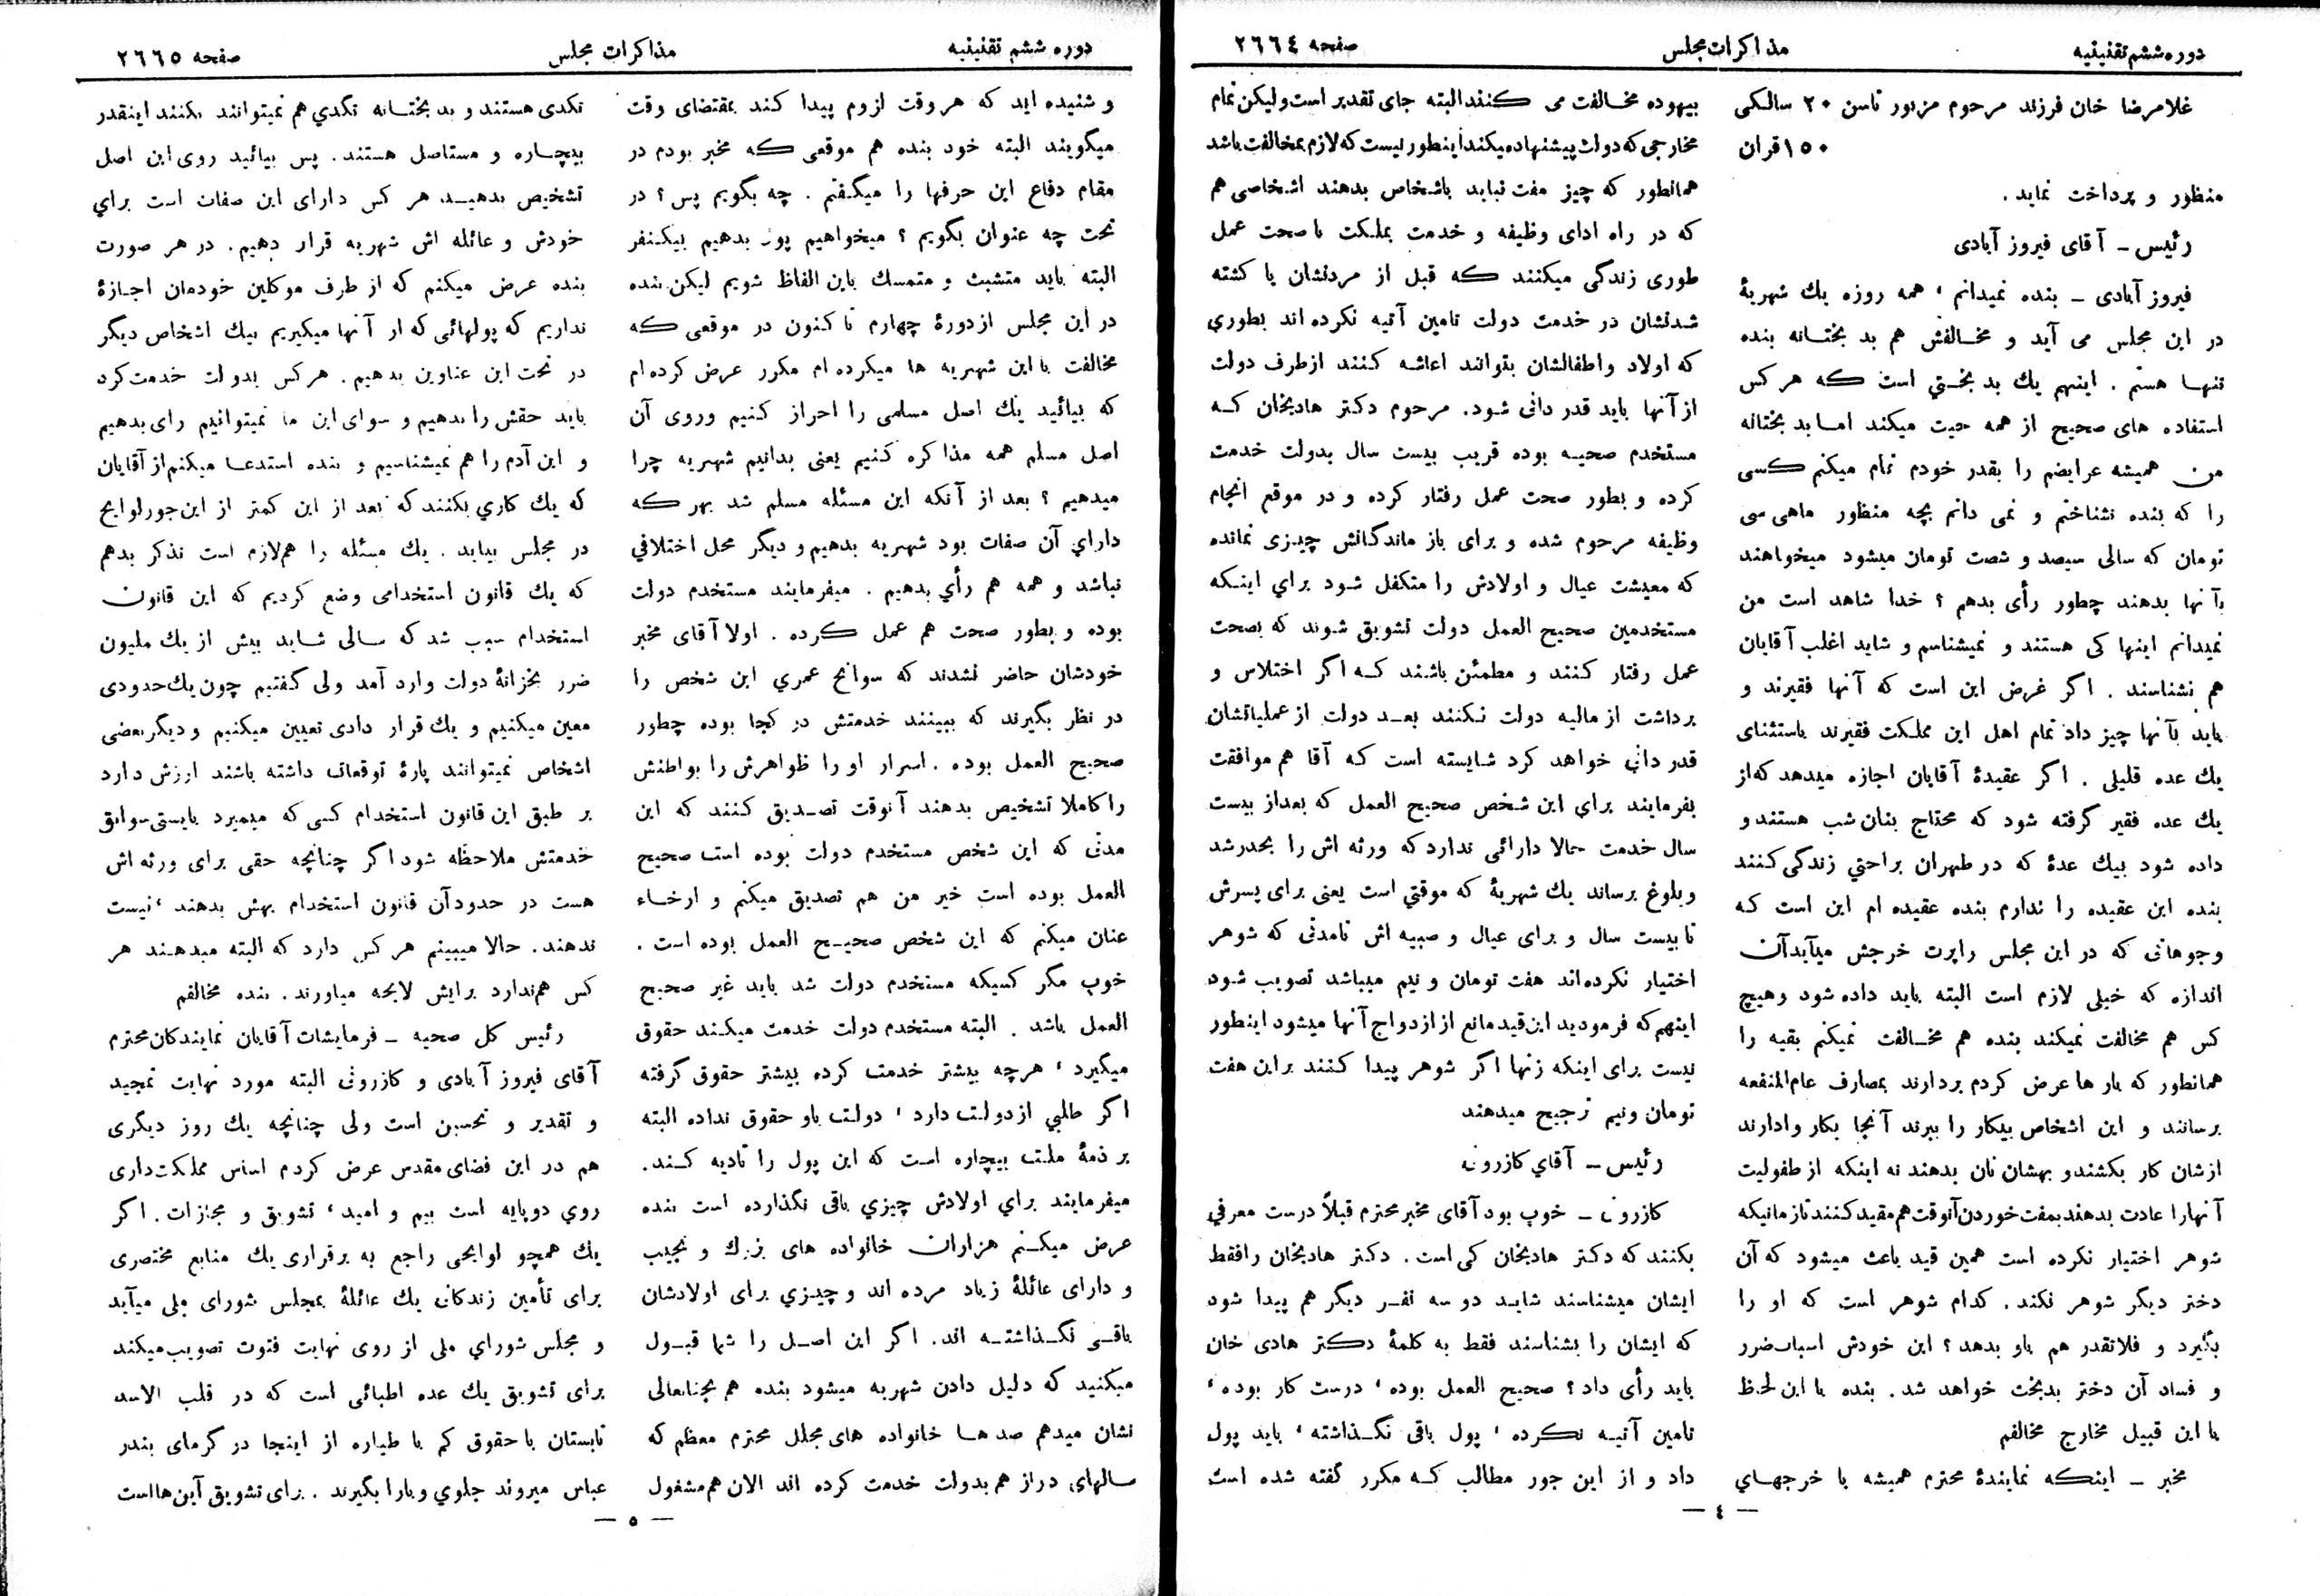 دوره ششم تقنینیه
مذاکرات مجلس
صفحه ٢٦٦٤
غلامرضا خان فرزند مرحوم مزبور تاسن ٢٠ سالگی
١٥٠ قران
منظور و پرداخت نماید .
رئیس ـ آقای فیروز آبادی
فیروز آبادی ـ بنده نمیدانم ، همه روزه یك شهریهٔ
در این مجلس می آید و مخالفش هم بد بختانه بنده
تنها هستم . اینهم یك بد بختی است که هر کس
استفاده های صحیح از همه حیث میکند اما بد بختانه
من همیشه عرایضم را بقدر خودم تمام میکنم کسی
را که بنده نشناختم و نمی دانم بچه منظور ماهی سی
تومان که سالی سیصد و شصت تومان میشود میخواهند
بآنها بدهند چطور رأی بدهم ؟ خدا شاهد است من
نمیدانم اینها کی هستند و نمیشناسم و شاید اغلب آقایان
هم نشناسند . اگر غرض این است که آنها فقیرند و
باید بآنها چیز داد تمام اهل این مملکت فقیرند باستثنای
یك عده قلیلی . اگر عقیدهٔ آقایان اجازه میدهد که از
یك عده فقیر گرفته شود که محتاج بنان شب هستند و
داده شود بیك عدهٔ که در طهران براحتی زندگی کنند
بنده این عقیده را ندارم بنده عقیده ام این است که
وجوهاتی که در این مجلس راپرت خرجش میآید آن
اندازه که خیلی لازم است البته باید داده شود وهیچ
کس هم مخالفت نمیکند بنده هم مخالفت نمیکنم بقیه را
همانطور که بار ها عرض کردم بردارند بمصارف عام المنفعه
برسانند و این اشخاص بیکار را ببرند آنجا بکار وادارند
ازشان کار بکشند و بهشان نان بدهند نه اینکه از طفولیت
آنهارا عادت بدهند بمفت خوردن آنوقت هم مقید کنند تازمانیکه
شوهر اختیار نکرده است همین قید باعث میشود که آن
دختر دیگر شوهر نکند . کدام شوهر است که او را
بگیرد و فلانقدر هم باو بدهد ؟ این خودش اسباب ضرر
و فساد آن دختر بدبخت خواهد شد . بنده با این لحاظ
با این قبیل مخارج مخالفم
مخبر ـ اینکه نمایندهٔ محترم همیشه با خرجهای
بیهوده مخالفت می کنند البته جای تقدیر است ولیکن تمام
مخارجی که دولت پیشنهاد میکند اینطور نیست که لازم بمخالفت باشد
همانطور که چیز مفت نباید باشخاص بدهند اشخاصی هم
که در راه ادای وظیفه و خدمت بمملکت با صحت عمل
طوری زندگی میکنند که قبل از مردنشان یا کشته
شدنشان در خدمت دولت تامین آتیه نکرده اند بطوری
که اولاد واطفالشان بتوانند اعاشه کنند از طرف دولت
از آنها باید قدر دانی شود . مرحوم دکتر هادیخان که
مستخدم صحیه بوده قریب بیست سال بدولت خدمت
کرده و بطور صحت عمل رفتار کرده و در موقع انجام
وظیفه مرحوم شده و برای باز ماندگانش چیزی نمانده
که معیشت عیال و اولادش را متکفل شود برای اینکه
مستخدمین صحیح العمل دولت تشویق شوند که بصحت
عمل رفتار کنند و مطمئن باشند که اگر اختلاس و
برداشت از مالیه دولت نکنند بعد دولت از عملیاتشان
قدر دانی خواهد کرد شایسته است که آقا هم موافقت
بفرمایند برای این شخص صحیح العمل که بعداز بیست
سال خدمت حالا دارائی ندارد که ورثه اش را بحد رشد
و بلوغ برساند یك شهریهٔ که موقتی است یعنی برای پسرش
تا بیست سال و برای عیال و صبیه اش تامدتی که شوهر
اختیار نکرده اند هفت تومان و نیم میباشد تصویب شود
اینهم که فرمودید این قید مانع از ازدواج آنها میشود اینطور
نیست برای اینکه زنها اگر شوهر پیدا کنند براین هفت
تومان ونیم ترجیح میدهند
رئیس ـ آقای کازرونی
کازرونی ـ خوب بود آقای مخبر محترم قبلاً درست معرفی
بکنند که دکتر هادیخان کی است . دکتر هادیخان رافقط
ایشان میشناسند شاید دو سه نفر دیگر هم پیدا شود
که ایشان را بشناسند فقط به کلمهٔ دکتر هادی خان
باید رأی داد ؟ صحیح العمل بوده ، درست کار بوده ،
تامین آتیه نکرده ، پول باقی نگذاشته ، باید پول
داد و از این جور مطالب که مکرر گفته شده است
ـ ٤ ـ
دوره ششم تقنینیه
مذاکرات مجلس
صفحه ٢٦٦٥
و شنیده اید که هر وقت لزوم پیدا کند بمقتضای وقت
میگویند البته خود بنده هم موقعی که مخبر بودم در
مقام دفاع این حرفها را میگفتم . چه بگویم پس ؟ در
تحت چه عنوان بگویم ؟ میخواهیم پول بدهیم بیکنفر
البته باید متشبث و متمسك باین الفاظ شویم لیکن بنده
در این مجلس از دورهٔ چهارم تا کنون در موقعی که
مخالفت با این شهریه ها میکرده ام مکرر عرض کرده ام
که بیائید یك اصل مسلمی را احراز کنیم وروی آن
اصل مسلم همه مذاکره کنیم یعنی بدانیم شهریه چرا
میدهیم ؟ بعد از آنکه این مسئله مسلم شد بهر که
دارای آن صفات بود شهریه بدهیم و دیگر محل اختلافی
نباشد و همه هم رأی بدهیم . میفرمایند مستخدم دولت
بوده و بطور صحت هم عمل کرده . اولا آقای مخبر
خودشان حاضر نشدند که سوانح عمری این شخص را
در نظر بگیرند که ببینند خدمتش در کجا بوده چطور
صحیح العمل بوده . اسرار او را ظواهرش را بواطنش
را کاملا تشخیص بدهند آنوقت تصدیق کنند که این
مدتی که این شخص مستخدم دولت بوده است صحیح
العمل بوده است خیر من هم تصدیق میکنم و ارخاء
عنان میکنم که این شخص صحیح العمل بوده است .
خوب مگر کسیکه مستخدم دولت شد باید غیر صحیح
العمل باشد . البته مستخدم دولت خدمت میکند حقوق
میگیرد ، هرچه بیشتر خدمت کرده بیشتر حقوق گرفته
اگر طلبی از دولت دارد ، دولت باو حقوق نداده البته
بر ذمهٔ ملت بیچاره است که این پول را تادیه کند .
میفرمایند برای اولادش چیزی باقی نگذارده است بنده
عرض میکنم هزاران خانواده های بزرك و نجیب
و دارای عائلهٔ زیاد مرده اند و چیزی برای اولادشان
باقی نگذاشته اند . اگر این اصل را شما قبول
میکنید که دلیل دادن شهریه میشود بنده هم بجنابعالی
نشان میدهم صد ها خانواده های مجلل محترم معظم که
سالهای دراز هم بدولت خدمت کرده اند الان هم مشغول
تکدی هستند و بد بختانه تکدی هم نمیتوانند بکنند اینقدر
بیچاره و مستاصل هستند . پس بیائید روی این اصل
تشخیص بدهید هر کس دارای این صفات است برای
خودش و عائله اش شهریه قرار دهیم . در هر صورت
بنده عرض میکنم که از طرف موکلین خودمان اجازهٔ
نداریم که پولهائی که از آنها میگیریم بیك اشخاص دیگر
در تحت این عناوین بدهیم . هر کس بدولت خدمت کرد
باید حقش را بدهیم و سوای این ما نمیتوانیم رای بدهیم
و این آدم را هم نمیشناسیم و بنده استدعا میکنم از آقایان
که یك کاری بکنند که بعد از این کمتر از این جور لوایح
در مجلس بیاید . یك مسئله را هم لازم است تذکر بدهم
که یك قانون استخدامی وضع کردیم که این قانون
استخدام سبب شد که سالی شاید بیش از یك ملیون
ضرر بخزانهٔ دولت وارد آمد ولی گفتیم چون یك حدودی
معین میکنیم و یك قرار دادی تعیین میکنیم و دیگر بعضی
اشخاص نمیتوانند پارهٔ توقعات داشته باشند ارزش دارد
بر طبق این قانون استخدام کسی که میمیرد بایستی سوابق
خدمتش ملاحظه شود اگر چنانچه حقی برای ورثه اش
هست در حدود آن قانون استخدام بهش بدهند ، نیست
ندهند . حالا میبینم هر کس دارد که البته میدهند هر
کس هم ندارد برایش لایحه میاورند . بنده مخالفم
رئیس کل صحیه ـ فرمایشات آقایان نمایندگان محترم
آقای فیروز آبادی و کازرونی البته مورد نهایت تمجید
و تقدیر و تحسین است ولی چنانچه یك روز دیگری
هم در این فضای مقدس عرض کردم اساس مملکت داری
روی دوپایه است بیم و امید ، تشویق و مجازات . اگر
یك همچو لوایحی راجع به برقراری یك منابع مختصری
برای تأمین زندگانی یك عائلهٔ بمجلس شورای ملی میآید
و مجلس شورای ملی از روی نهایت فتوت تصویب میکند
برای تشویق یك عده اطبائی است که در قلب الاسد
تابستان با حقوق کم با طیاره از اینجا در گرمای بندر
عباس میروند جلوی وبا را بگیرند . برای تشویق آین ها است
ـ ٥ ـ